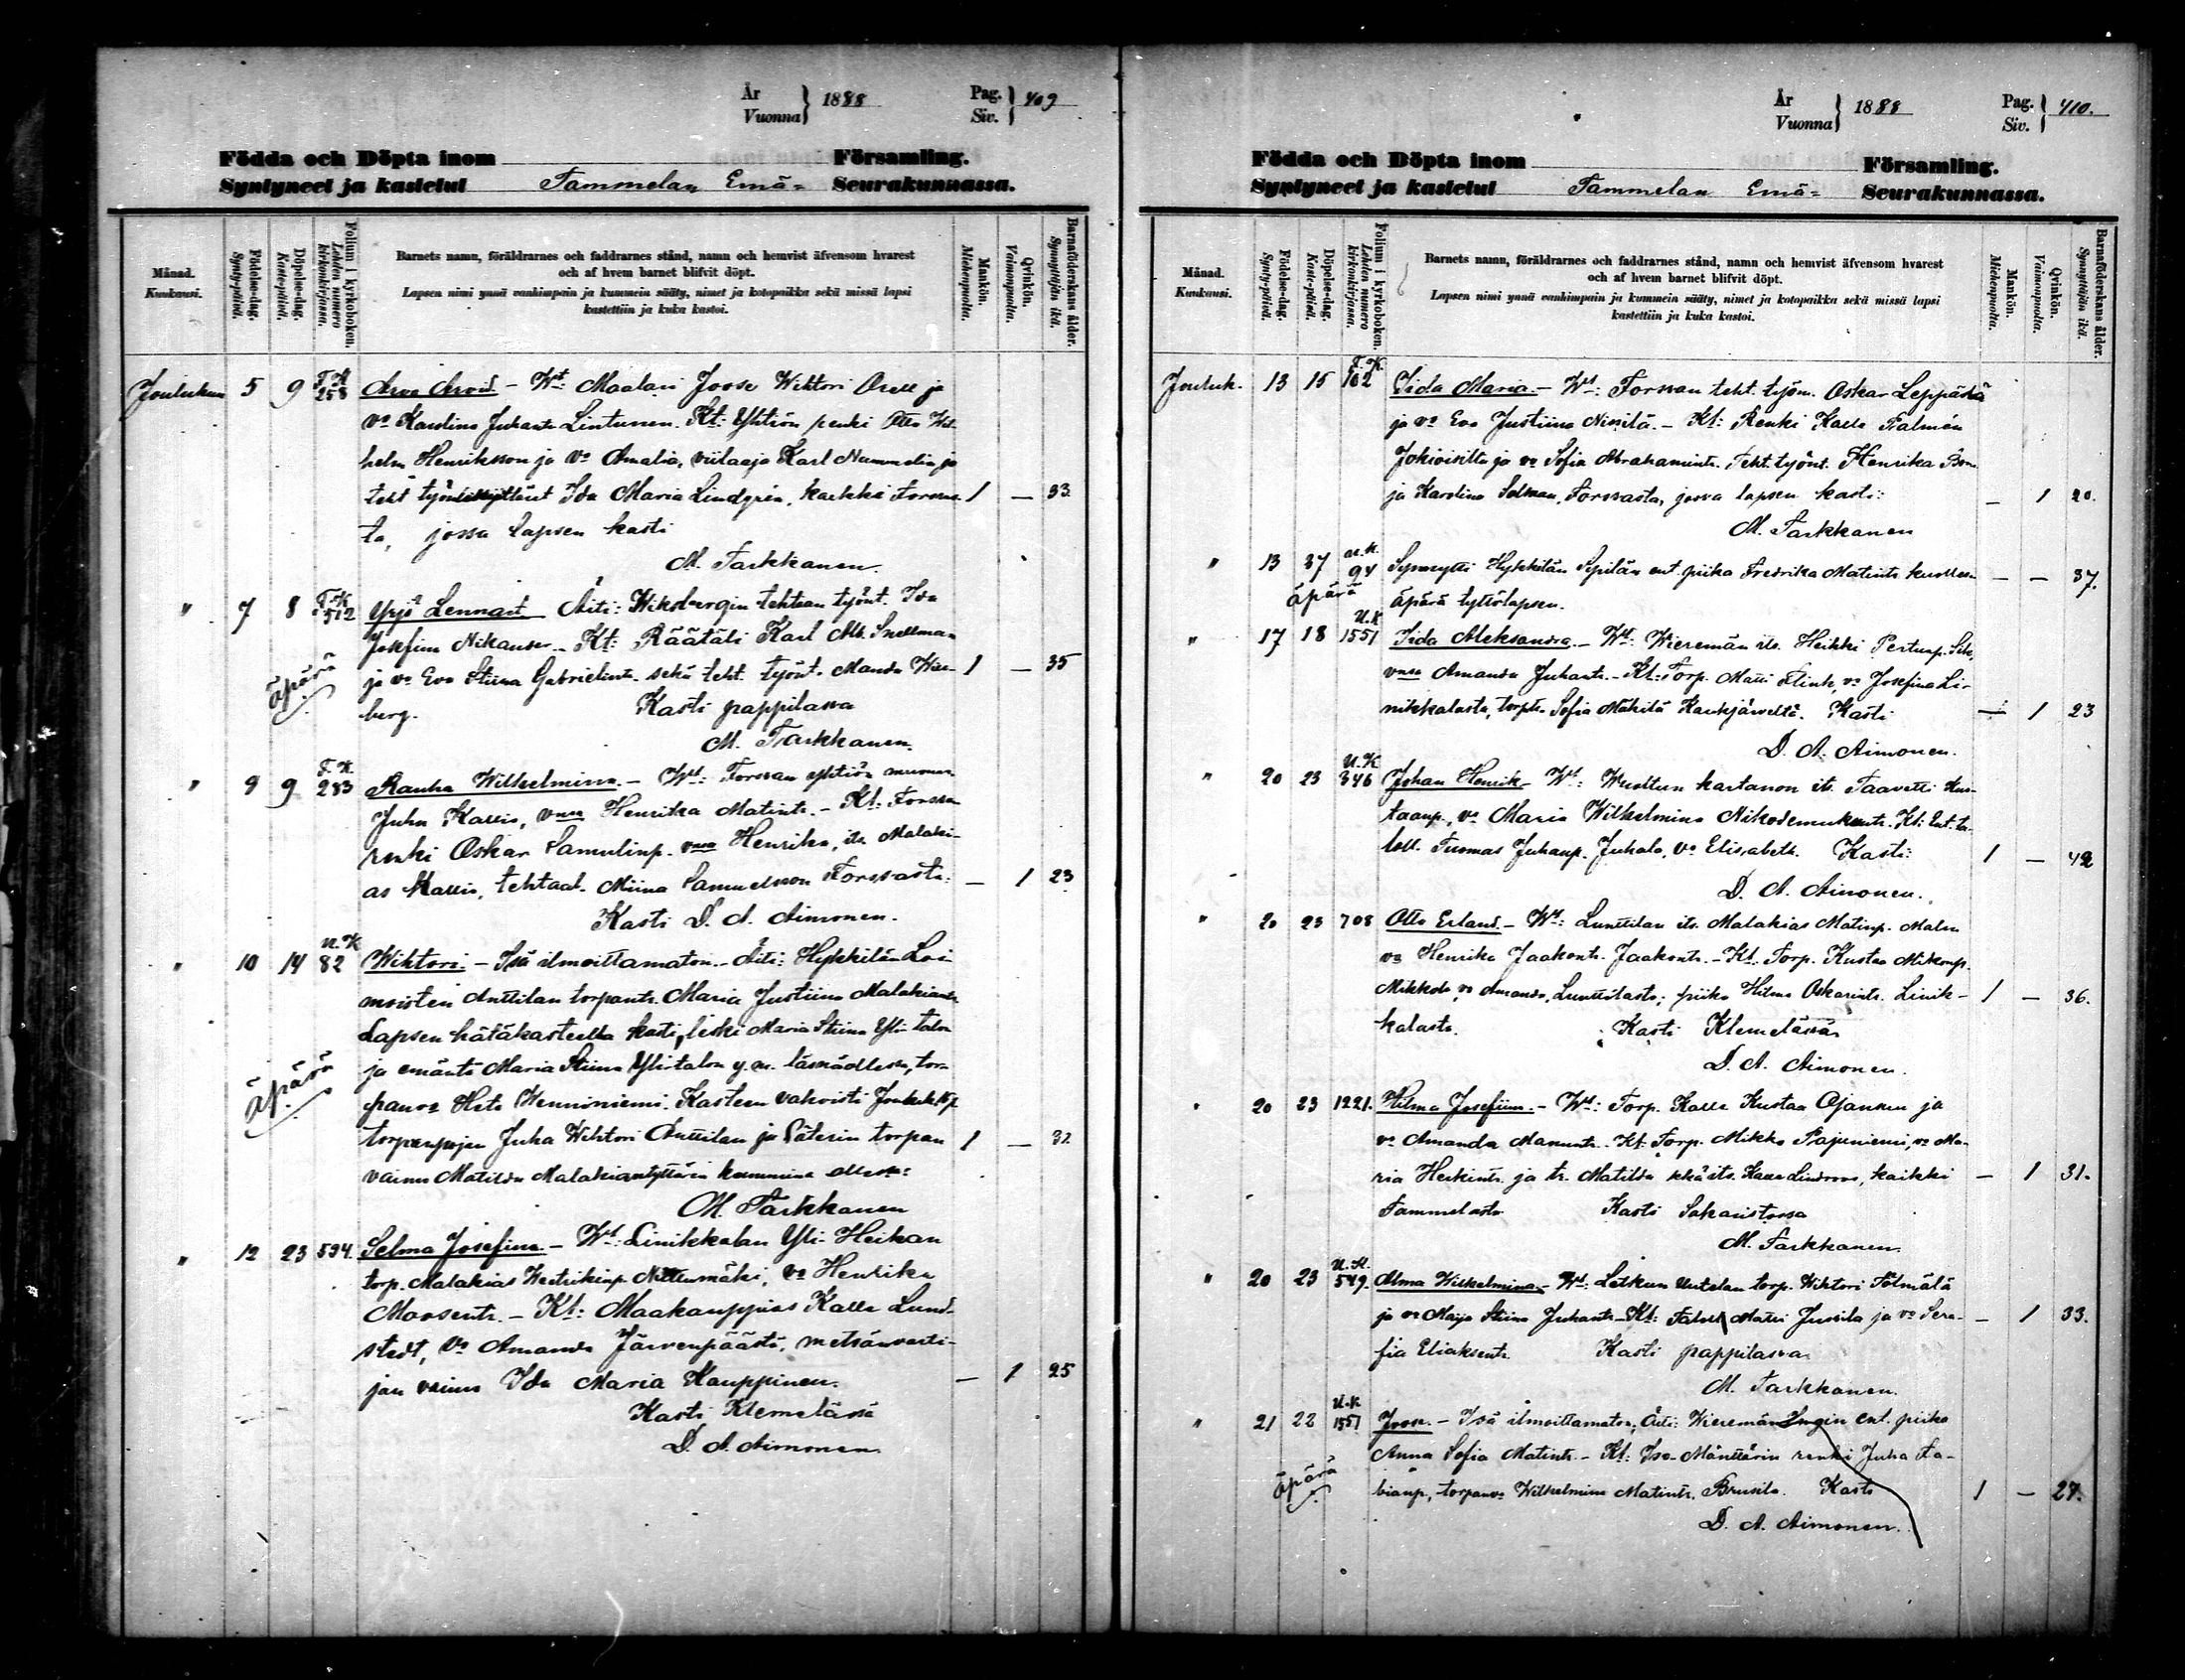 År
Vuonna } 1888
Pag.
Siv. } 409
Födda och Döpta inom Församling.
Syntyneet ja kastetut Tammelan Emä- Seurakunnassa.
Månad.
Kuukausi.
Födelse-dag.
Synty-päivä.
Döpelse-dag.
Kaste-päivä.
Folium i kyrkoboken.
Lehden numero kirkonkirjassa.
Barnets namn, föräldrarnes och faddrarnes stånd, namn och hemvist äfvensom hvarest
och af hvem barnet blifvit döpt.
Lapsen nimi ynnä vanhimpain ja kummein sääty, nimet ja kotopaikka sekä missä lapsi
kastettiin ja kuka kastoi.
Mankön.
Miehenpuolta.
Qvinkön.
Vaimonpuolta.
Barnaföderskans ålder.
Synnyttäjän ikä.
Joulukuu 5 9 F.K. 258 Arvo Arvid - Wt: Maalari Joose Wihtori Orell ja
vo Karolina Juhantr Lintunen. Kt: Yhtiön renki Otto Wil-
helm Henriksson ja vo Amalia, viilaaja Karl Nummelin ja
teht Ida Maria Lindgrén, kaikki Forssas- 1 — 33
ta, jossa lapsen kasti
M. Tarkkanen.
" 7 8 F.K. 512 Yrjö Lennart Äiti: Wiksbergin tehtaan työnt. Ida
Josefina Nikander. - Kt: Räätäli Karl Alb. Snellman
äpärä ja vo Eva Stiina Gabrielintr. sekä teht. työnt. Manda Wiss- 1 — 35
berg. Kasti pappilassa
M. Tarkkanen.
" 9 9 F.K. 283 Rauha Wilhelmina. - Wt: Forssan yhtiön muurar.
Juha Kallio, vmo Henrika Matintr. - Kt: Forssan
renki Oskar Samulinp. vmo Henrika, its. Malaki-
as Kallio, tehtaal. Miina Samuelsson Forssasta. — 1 23
Kasti D. A. Aimonen.
" 10 14 U.K. 82 Wihtori. - Isä ilmoittamaton. - Äiti: Hykkilän Loi-
moisten Anttilan torpantr. Maria Justiina Malakiantr
Lapsen hätäkasteella kasti, leski Maria Stiina Yli-talon
ja emäntä Maria Stiina Ylistalon y. m. läsnäollessa, tor-
äpärä panvo Heta Wenninniemi. Kasteen vahvisti Jouluk.
torpanpojan Juha Wihtori Anttilan ja Säterin torpan 1 — 32
vaimo Matilda Malakiantyttären kummina ollessa:
M. Tarkkanen
" 12 23 594. Selma Josefina. - Wt: Linikkalan Yli-Heikan
torp. Malakias Weetrikinp. Niittumäki, vo Henrika
Moosentr. - Kt: Maakauppias Kalle Lund-
stedt, vo Amanda Järvenpäästä, metsänvarti-
jan vaimo Ida Maria Kauppinen. — 1 25
Kasti Klemelässä
D. A. Aimonen
År
Vuonna } 1888
Pag.
Siv. } 410.
Födda och Döpta inom Församling.
Syntyneet ja kastetut Tammelan Emä- Seurakunnassa.
Månad.
Kuukausi.
Födelse-dag.
Synty-päivä.
Döpelse-dag.
Kaste-päivä.
Folium i kyrkoboken.
Lehden numero kirkonkirjassa.
Barnets namn, föräldrarnes och faddrarnes stånd, namn och hemvist äfvensom hvarest
och af hvem barnet blifvit döpt.
Lapsen nimi ynnä vanhimpain ja kummein sääty, nimet ja kotopaikka sekä missä lapsi
kastettiin ja kuka kastoi.
Mankön.
Miehenpuolta.
Qvinkön.
Vaimonpuolta.
Barnaföderskans ålder.
Synnyttäjän ikä.
Jouluk. 13 15 F.K. 102 Iida Maria. - Wt: Forssan teht. työm. Oskar Leppästä
ja vo Eva Justiina Nissilä. - Kt: Renki Kalle Palmén
Jokioisilta ja vo Sofia Abrahamintr. Teht. työnt. Henrika
ja Karolina Salman, Forssasta, jossa lapsen kasti: — 1 20.
M. Tarkkanen
" 13 27 U.K. 94 Synnytti Hykkilän Sepilän ent. piika Fredrika Matintr. kuolleen — — 37.
äpärä äpärä tyttölapsen.
" 17 18 U.K. 1551 Iida Aleksandra. - Wt: Wieremän its. Heikki Pertunp.
vmo Amanda Juhantr. - Kt: Torp. Matti Flink, vo Josefina Li-
nikkalasta, torptr. Sofia Mäkilä Kaukjärveltä. Kasti — 1 23
D. A. Aimonen.
" 20 23 U.K. 346 Johan Henrik - Wt: kartanon its. Taavetti Kus-
taanp., vo Maria Wilhelmina Nikodemuksentr. Kt: Ent. ta-
loll. Tuomas Juhanp. Juhala, vo Elisabeth. Kasti: 1 — 42
D. A. Aimonen.
" 20 23 708 Otto Erland. - Wt: Lunttilan its. Malakias Matinp. Malin
vo Henrika Jaakontr. Jaakontr. - Kt. Torp. Kustaa Mikonp.
Mikkola, vo Amanda, Lunttilasta; piika Hilma Oskarintr. Linik- 1 — 36.
kalasta. Kasti Klemelässä
D. A. Aimonen.
" 20 23 1221. Hilma Josefiina. - Wt: Torp. Kalle Kustaa Ojanen ja
vo Amanda Manuntr. Kt: Torp. Mikko Pajuniemi, vo Ma-
ria Heikintr. ja tr. Matilda sekä its. Kalle Lindroos, kaikki — 1 31.
Tammelasta Kasti Sakaristossa
M. Tarkkanen.
" 20 23 U.K. 549. Alma Wilhelmina - Wt: Letkun Uutelan torp. Wihtori Tölmälä
ja vo Maija Stiina Juhantr. Kt: Taloll. Matti Jussila ja vo Sera- — 1 33.
fia Eliaksentr. Kasti pappilassa
M. Tarkkanen.
" 21 22 U.K. 1557 Joose. - Isä ilmoittamaton; Äiti: Wieremän ent. piika
Anna Sofia Matintr. - Kt: Iso-Mänttärin renki Juha Fa-
äpärä bianp., torpanvo Wilhelmina Matintr. Brusila. Kasti 1 — 27.
D. A. Aimonen.